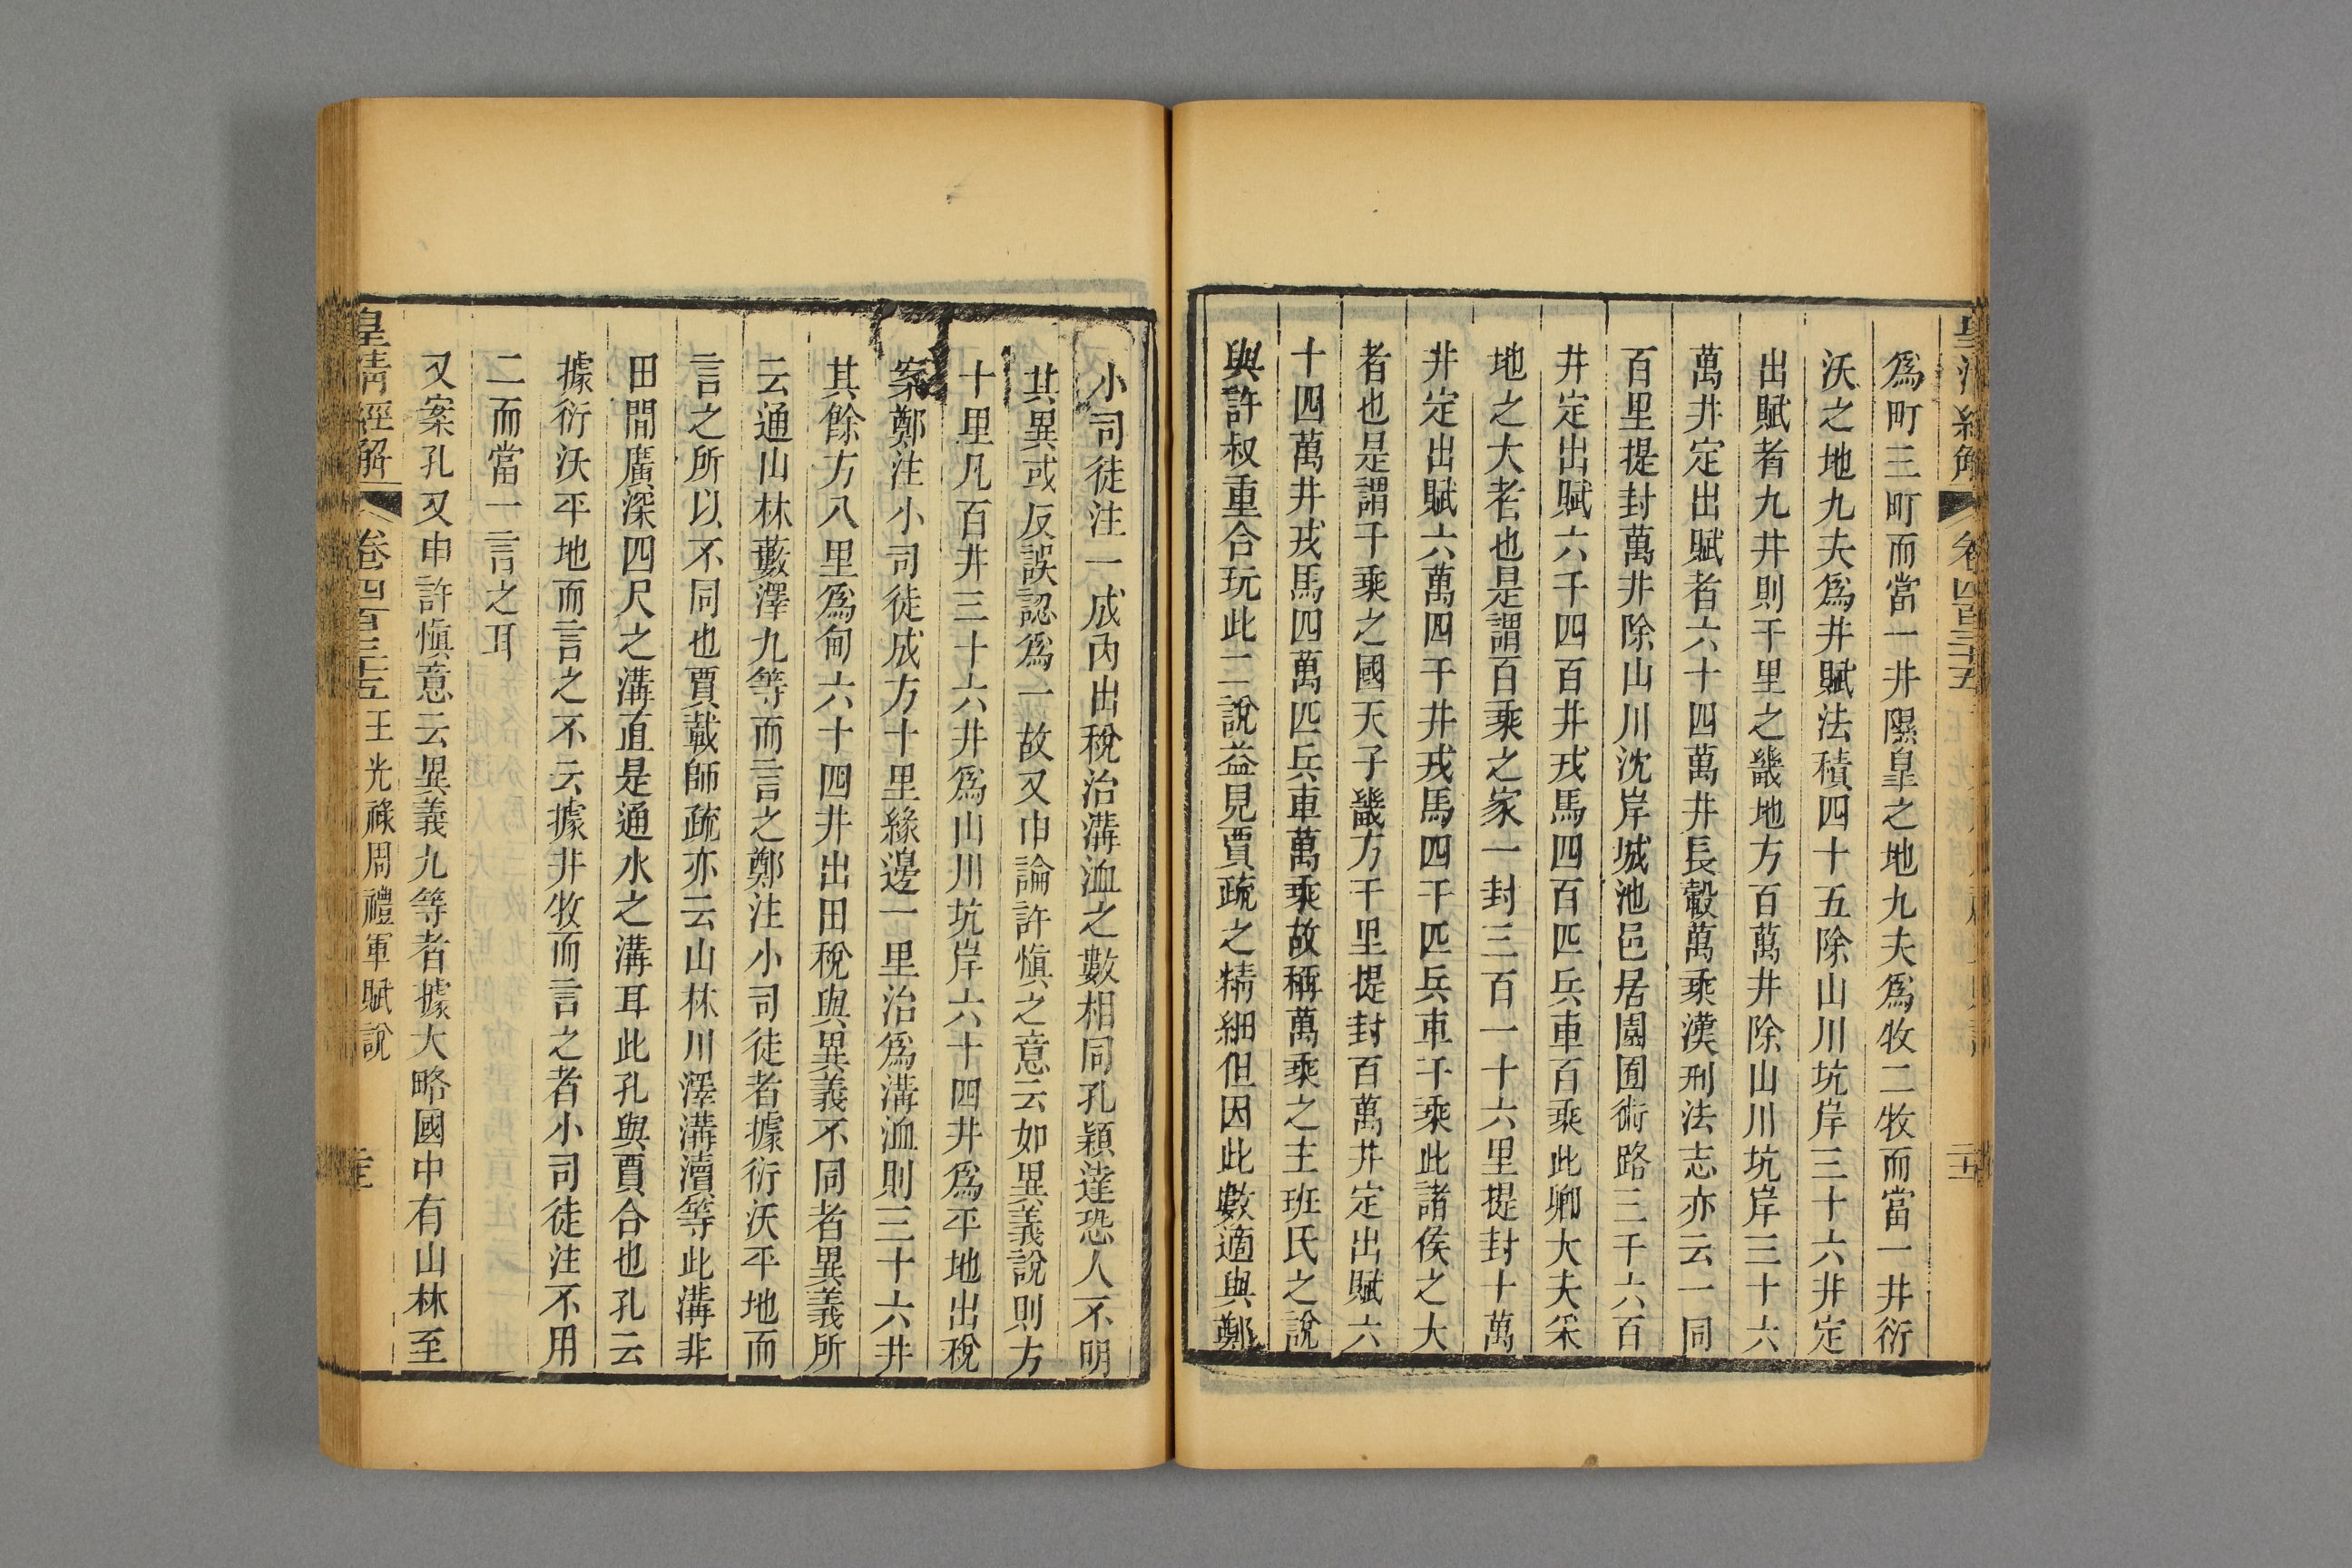 爲町三町而當一井隰臯之地九夫爲牧二牧而當一井衍
沃之地九夫爲井賦法積四十五除山川坑岸三十六井定
出賦者九井則千里之畿地方百萬井除山川坑岸三十六
萬井定出賦者六十四萬井長轂萬乘漢刑法志亦云一同
百里提封萬井除山川沈岸城池邑居園囿術路三千六百
井定出賦六千四百井戎馬四百匹兵車百乘此卿大夫采
地之大者也是謂百乘之家一封三百一十六里提封十萬
井定出賦六萬四千井戎馬四千匹兵車千乘此諸侯之大
者也是謂千乘之國天子畿方千里提封百萬井定出賦六
十四萬井戎馬四萬匹兵車萬乘故稱萬乘之主班氏之說
與許叔重合玩此二說益見賈疏之精細但因此數適與鄭
小司徒注一成內出稅治溝洫之數相同孔穎達恐人不明
其異或反誤認爲一故又申論許愼之意云如異義說則方
十里凡百井三十六井爲山川坑岸六十四井爲平地出稅
案鄭注小司徒成方十里緣邊一里治爲溝洫則三十六井
其餘方八里爲甸六十四井出田稅與異義不同者異義所
云通山林藪澤九等而言之鄭注小司徒者據衍沃平地而
言之所以不同也賈載師疏亦云山林川澤溝瀆等此溝非
田間廣深四尺之溝直是通水之溝耳此孔與賈合也孔云
據衍沃平地而言之不云據井牧而言之者小司徒注不用
二而當一言之耳
又案孔又申許愼意云異義九等者據大略國中有山林至
皇清經解
卷四百三十五 王光祿周禮軍賦說